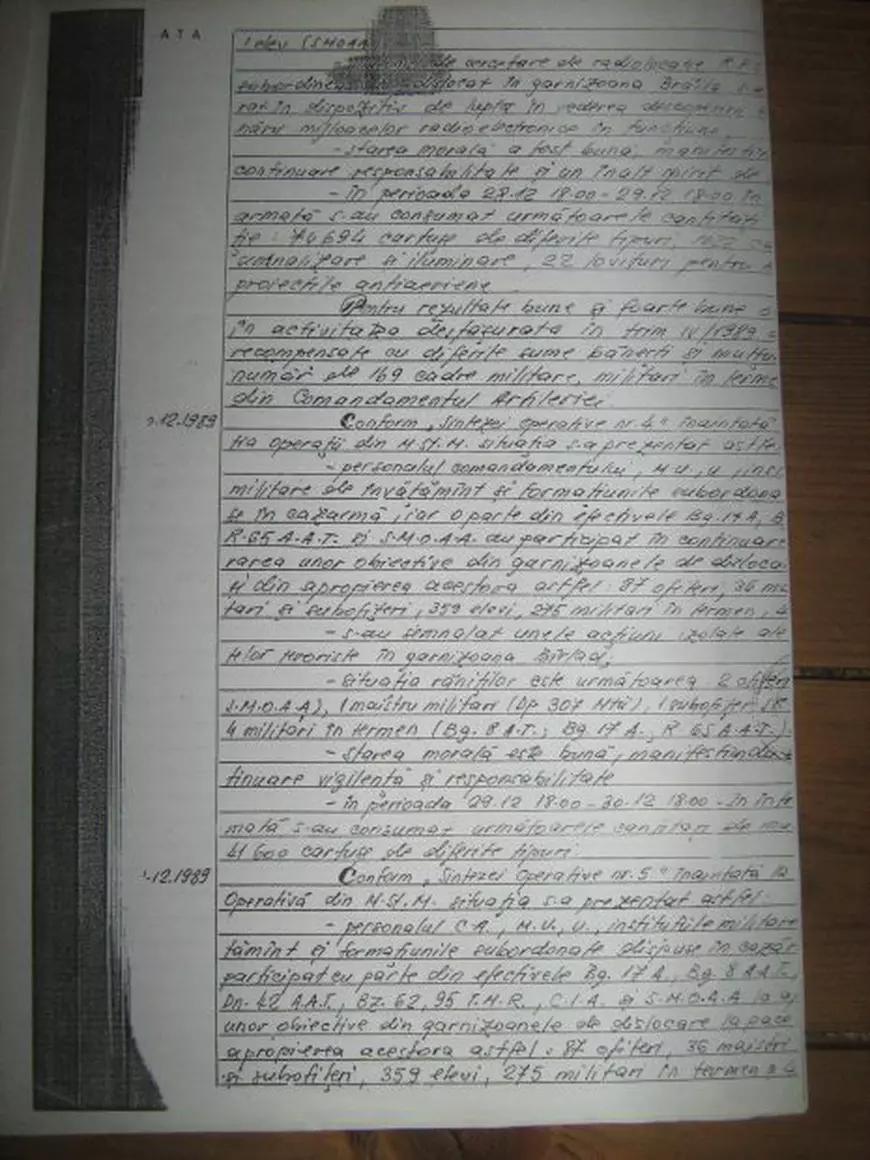 ATA
1 elev (SMOAA
de cercetare de radiolocație
dislocat în garnizoana Brăila
rat în dispozitiv de luptă în vederea
nării mijloacelor radioelectronice în funcțiune.
- starea morală a fost bună,
continuare responsabilitate și un înalt spirit de
- în perioada 28.12 18.00 - 29.12 18.00 în
armată s-au consumat următoarele cantități
ție: cartușe de diferite tipuri,
semnalizare și iluminare, 22 lovituri pentru
proiectile antiaeriene
Pentru rezultate bune și foarte bune
în activitatea desfășurată în trim IV/1989
recompensate cu diferite sume bănești și
număr de 169 cadre militare, militari în
din Comandamentul Artileriei.
.12.1989 Conform „Sintezei operative nr. 4" înaintată
ția operații din M.St.M. situația s-a prezentat
- personalul comandamentului, M.U., U.,
militare de învățămînt și formațiunile
se în cazarmă, iar o parte din efectivele Bg. 17 A,
R. 65 A.A.T. și S.M.O.A.A. au participat în continuare
rarea unor obiective din garnizoanele de
și din apropierea acestora astfel: 87 ofițeri, 36
tari și subofițeri, 359 elevi, 275 militari în termen,
- s-au semnalat unele acțiuni izolate ale
telor teroriste în garnizoana Bîrlad;
- situația răniților este următoarea: 2 ofițeri
S.M.O.A.A), 1 maistru militari (Dp 307 Mtă), 1 subofițer
4 militari în termen (Bg. 8 A.T.; Bg. 17 A., R 65 A.A.T.).
- starea morală este bună, manifestînd
tinuare vigilență și responsabilitate
- în perioada 29.12 18.00 - 30.12 18.00 - în
mată s-au consumat următoarele cantități de
41 600 cartușe de diferite tipuri.
.12.1989 Conform „Sintezei Operative nr. 5" înaintată la
Operativă din M.St.M. situația s-a prezentat astfel:
- personalul C.A., M.U., U., instituțiile militare
țămînt și formațiunile subordonate dispuse în
participat cu parte din efectivele Bg. 17 A., Bg. 8 A.A.T.,
Dn. 42 A.A.T., Bz. 62, 95 T.M.R., C.I.A. și S.M.O.A.A la
unor obiective din garnizoanele de dislocare la pace
apropierea acestora astfel: 87 ofițeri, 36 maiștri
și subofițeri, 359 elevi, 275 militari în termen